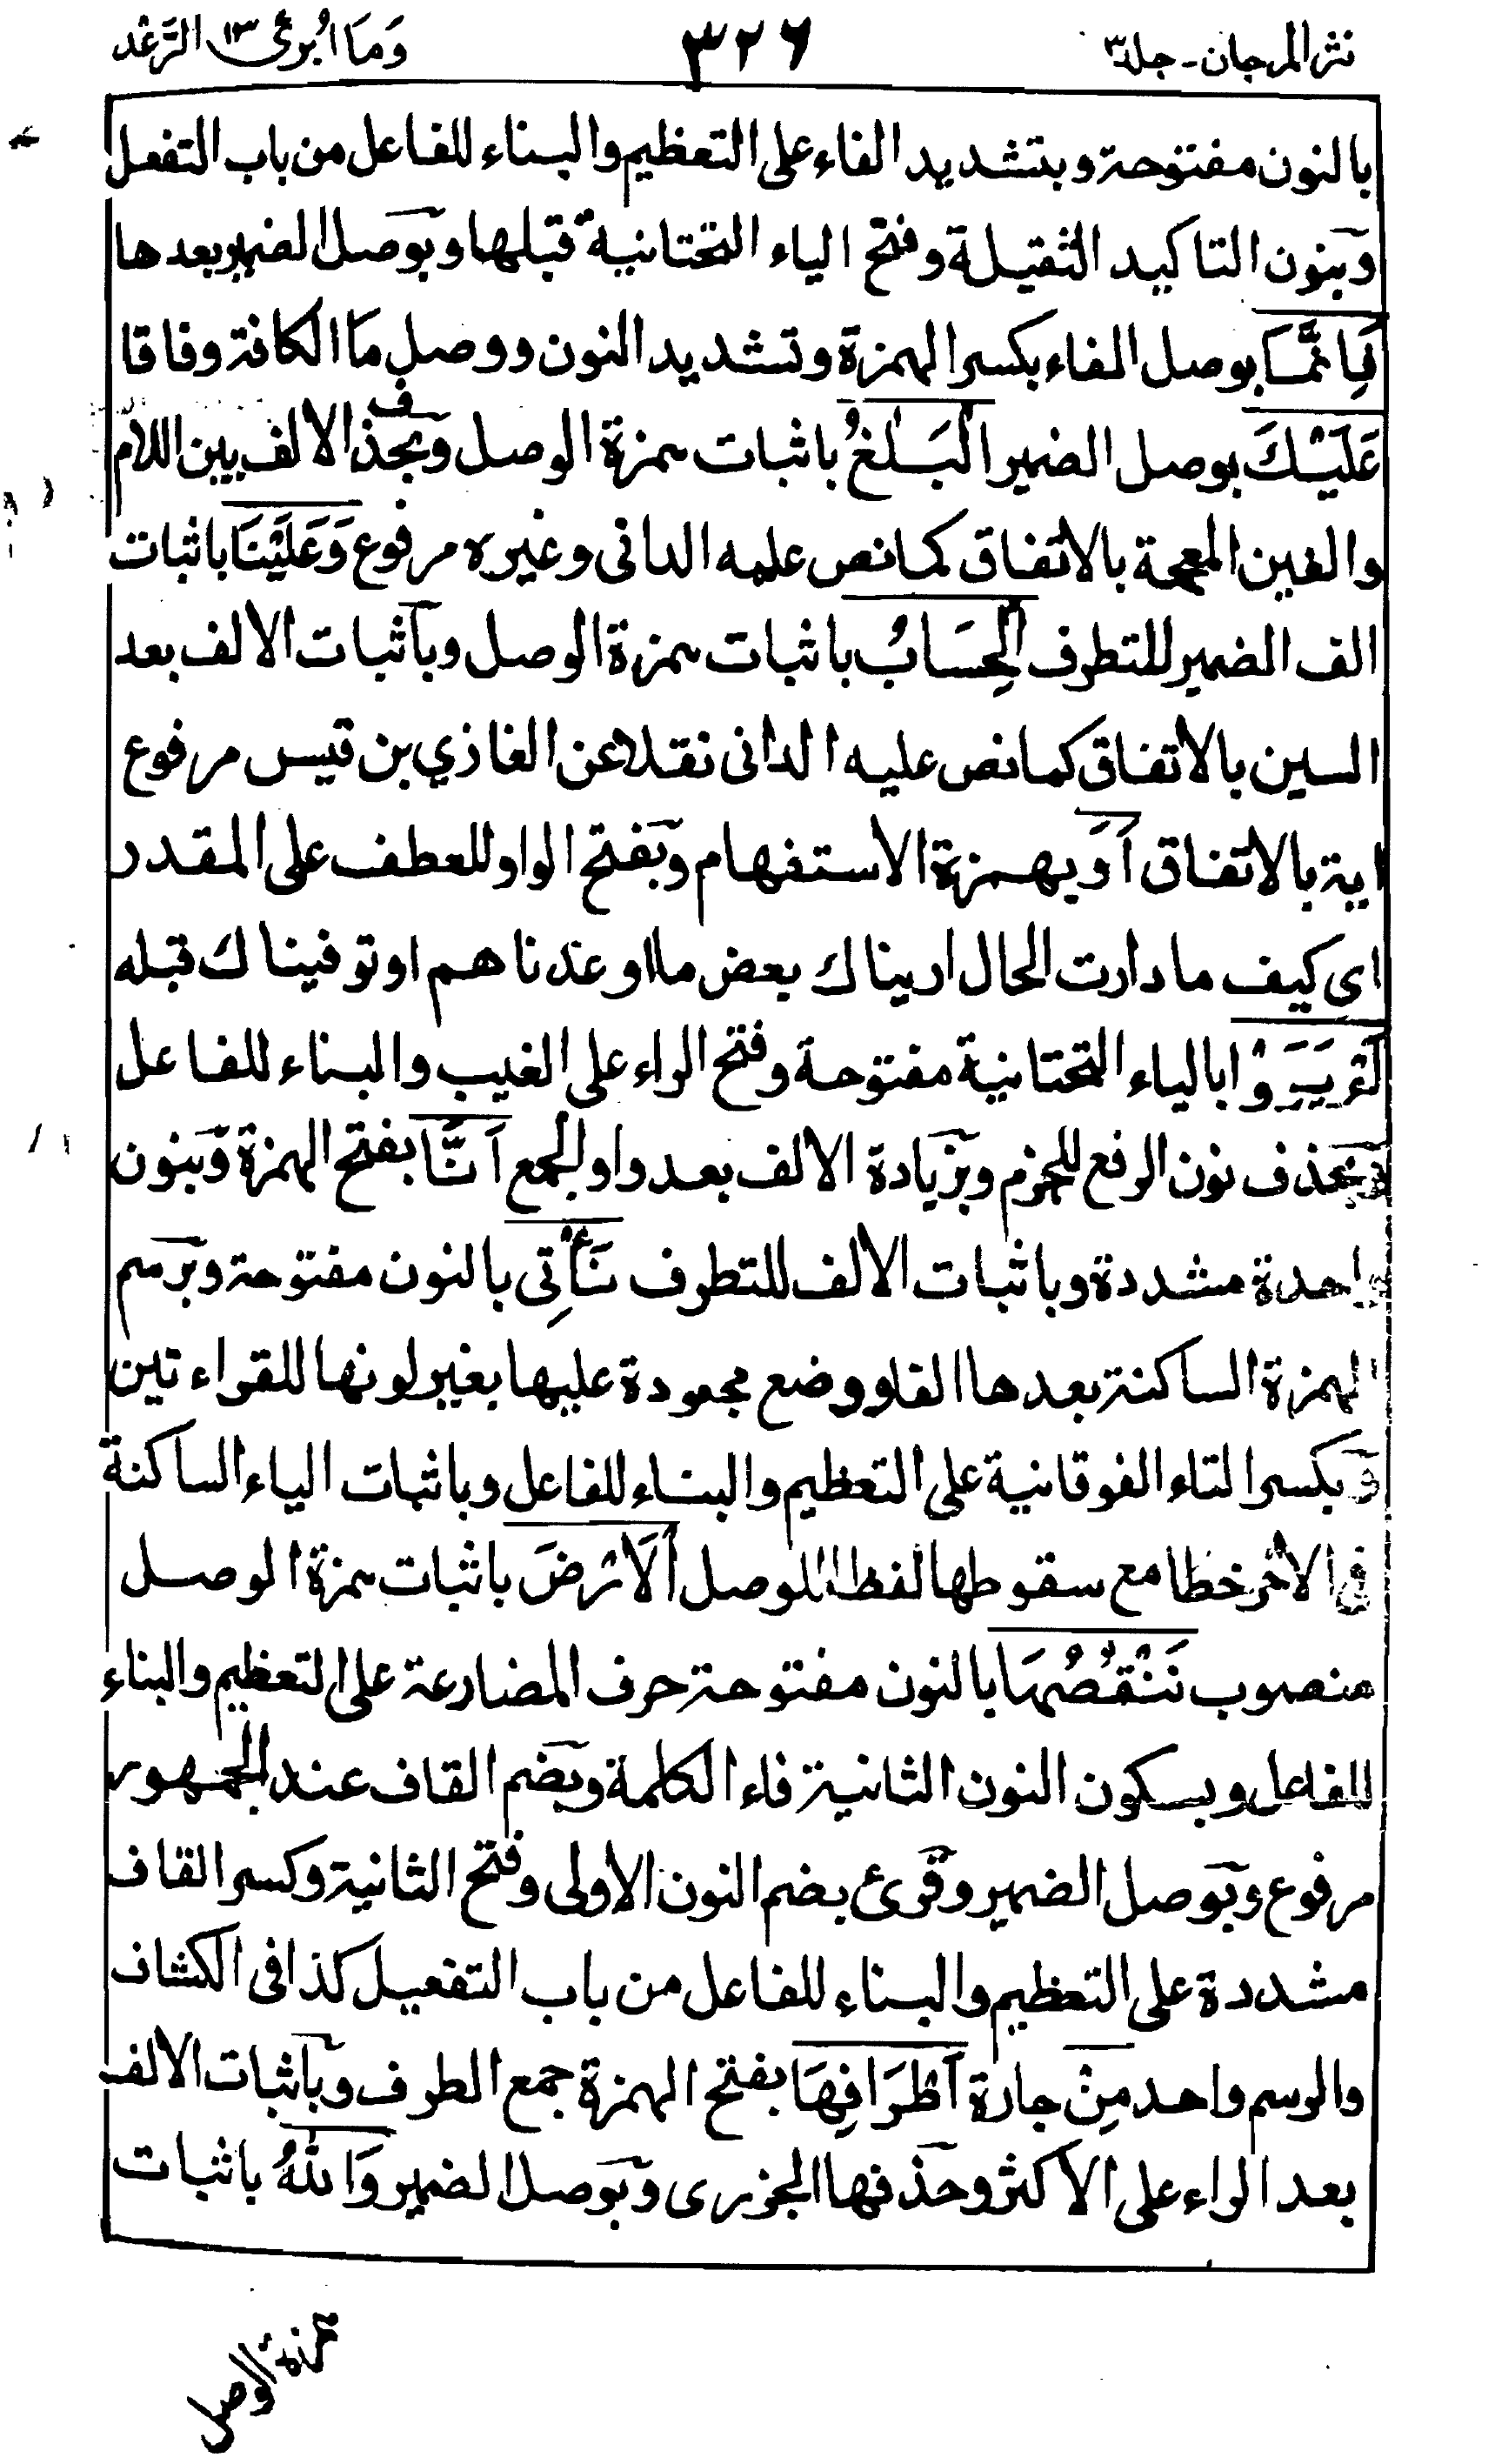 نثر المرجان - جلد ٣
٣٢٦
وَمَا اُبَرِّئُ ١٣ الرَّعْد
بالنون مفتوحة وبتشديد الفاء على التعظيم والبناء للفاعل من باب التفعل
وبنون التاكيد الثقيلة وفتح الياء التحتانية قبلها وبوصل الضمير بعدها
فَاِنَّمَا بوصل الفاء بكسر الهمزة وتشديد النون ووصل مَا الكافة وفاقا
عَلَيْكَ بوصل الضمير الْبَلٰغُ باثبات همزة الوصل وبحذف الالف بين اللام
والغين المعجمة بالاتفاق كما نص عليه الدانى وغيره مرفوع وَعَلَيْنَا باثبات
الف الضمير للتطرف الْحِسَابُ باثبات همزة الوصل وباثبات الالف بعد
السين بالاتفاق كما نص عليه الدانى نقلا عن الغازي بن قيس مرفوع
اية بالاتفاق اَوَ بهمزة الاستفهام وبفتح الواو للعطف على المقدر
اى كيف ما دارت الحال اريناك بعض ما اوعدناهم او توفيناك قبله
لَمْ يَرَوْا بالياء التحتانية مفتوحة وفتح الراء على الغيب والبناء للفاعل
وبحذف نون الرفع للجزم وبزيادة الالف بعد واو الجمع اَنَّا بفتح الهمزة وبنون
واحدة مشددة وباثبات الالف للتطرف نَأْتِى بالنون مفتوحة وبرسم
الهمزة الساكنة بعدها الفا ووضع مجعودة عليها بغير لونها للقراءتين
وبكسر التاء الفوقانية على التعظيم والبناء للفاعل وباثبات الياء الساكنة
فى الاخر خطا مع سقوطها لفظا للوصل الْاَرْضَ باثبات همزة الوصل
منصوب نَنْقُصُهَا بالنون مفتوحة حرف المضارعة على التعظيم والبناء
للفاعل وبسكون النون الثانية فاء الكلمة وبضم القاف عند الجمهور
مرفوع وبوصل الضمير وقرئ بضم النون الاولى وفتح الثانية وكسر القاف
مشددة على التعظيم والبناء للفاعل من باب التفعيل كذا فى الكشاف
والرسم واحد مِنْ جارة اَطْرَافِهَا بفتح الهمزة جمع الطرف وباثبات الالف
بعد الراء على الاكثر وحذفها الجزرى وبوصل الضمير وَاللّٰهُ باثبات
همزة الوصل